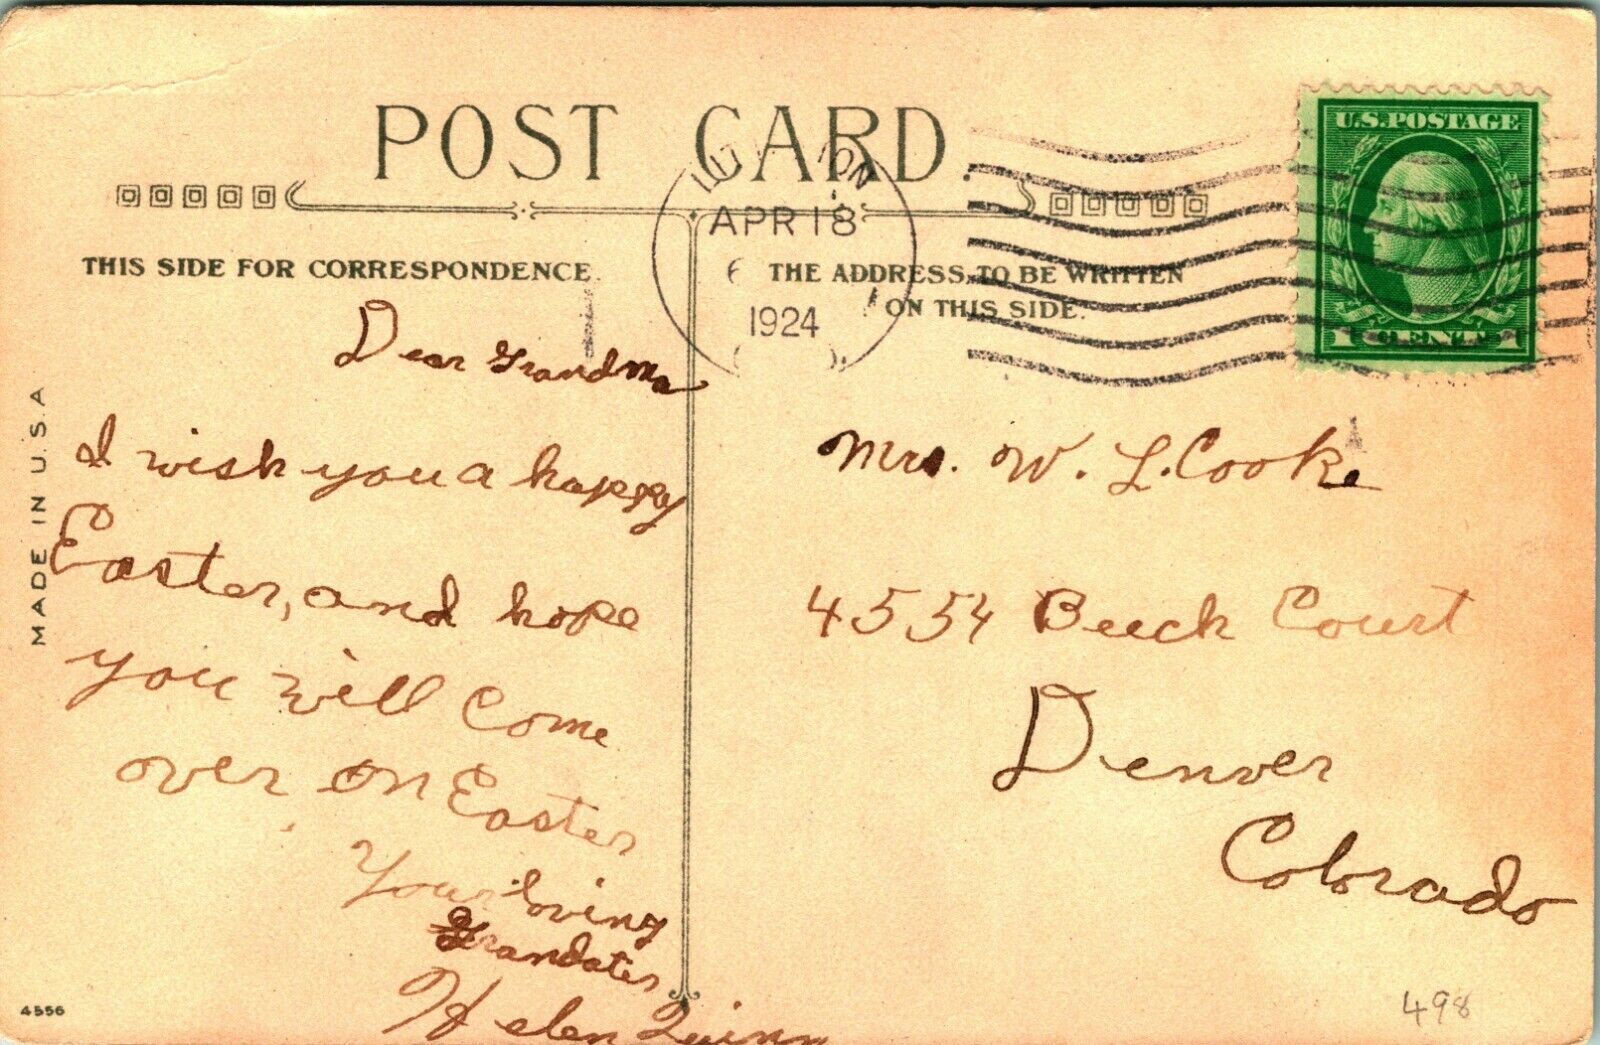 POST CARD.
APR 18
6
1924
U.S.POSTAGE
1 CENT 1
THIS SIDE FOR CORRESPONDENCE.
THE ADDRESS TO BE WRITTEN
ON THIS SIDE.
MADE IN U.S.A
Dear Grandma
I wish you a happy
Easter, and hope
you will come
over on Easter
Your loving
Grandater
Helen Quinn
Mrs. W. L. Cooke
4554 Beech Court
Denver
Colorado
4556
498